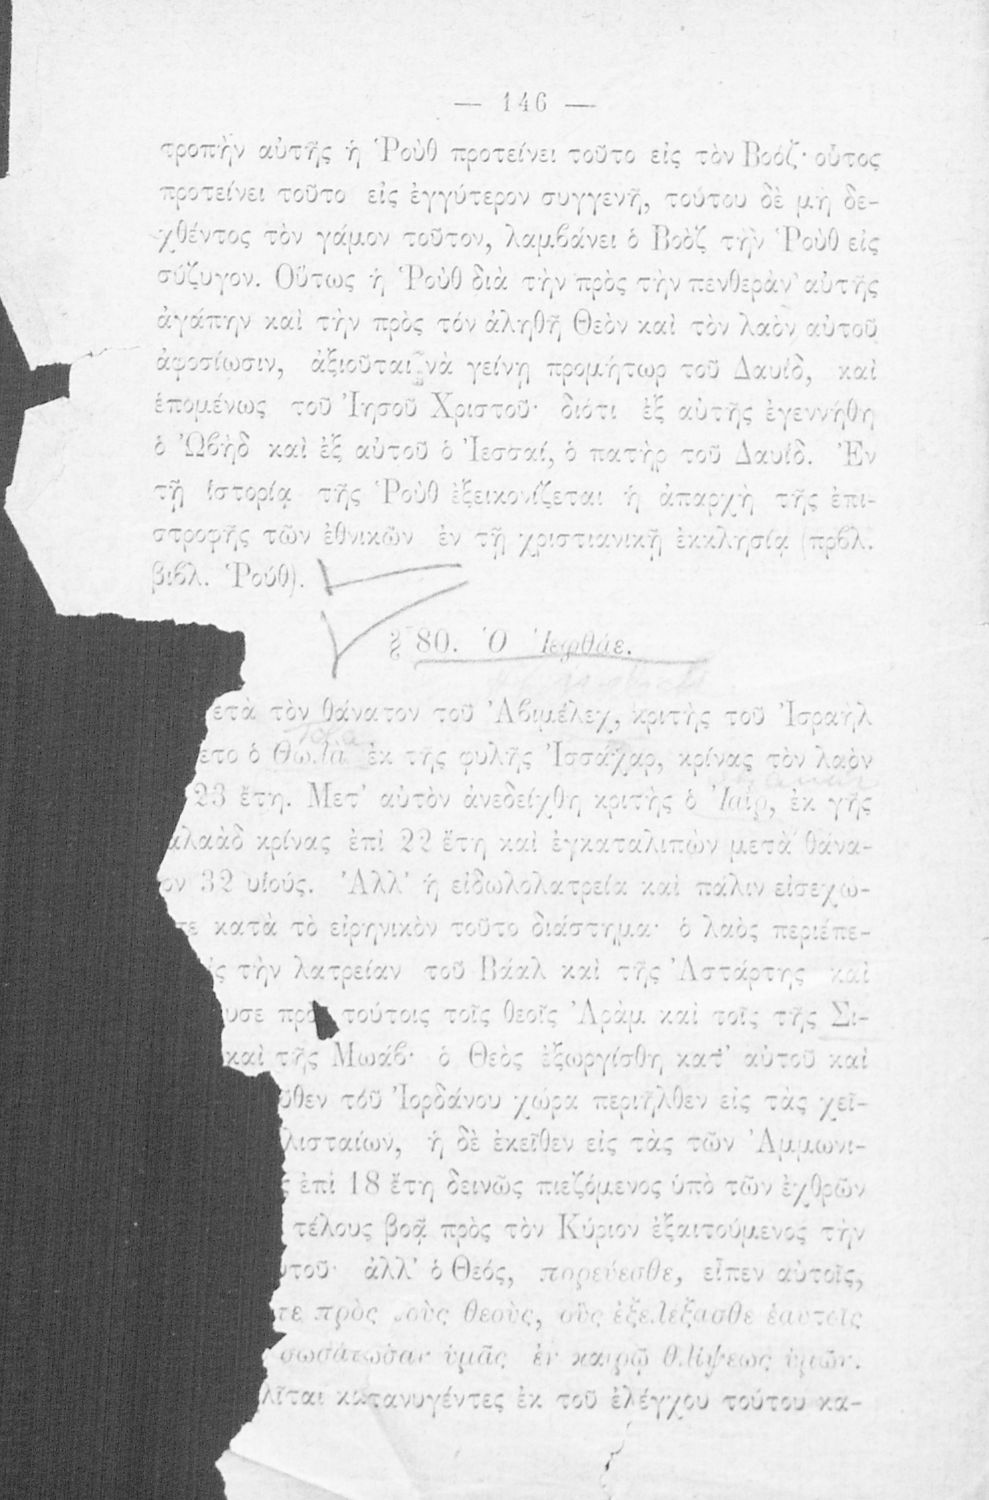 — 146 —
τροπὴν αὐτῆς ἡ Ῥοὺθ προτείνει τοῦτο εἰς τὸν Βοόζ· οὗτος
προτείνει τοῦτο εἰς ἐγγύτερον συγγενῆ, τούτου δὲ μὴ δε-
χθέντος τὸν γάμον τοῦτον, λαμβάνει ὁ Βοὸζ τὴν Ῥοὺθ εἰς
σύζυγον. Οὕτως ἡ Ῥοὺθ διὰ τὴν πρὸς τὴν πενθερὰν αὐτῆς
ἀγάπην καὶ τὴν πρὸς τόν ἀληθῆ Θεὸν καὶ τὸν λαὸν αὐτοῦ
ἀφοσίωσιν, ἀξιοῦται νὰ γείνῃ προμήτωρ τοῦ Δαυίδ, καὶ
ἑπομένως τοῦ Ἰησοῦ Χριστοῦ· διότι ἐξ αὐτῆς ἐγεννήθη
ὁ Ὠβὴδ καὶ ἐξ αὐτοῦ ὁ Ἰεσσαί, ὁ πατὴρ τοῦ Δαυίδ. Ἐν
τῇ ἱστορίᾳ τῆς Ῥοὺθ ἐξεικονίζεται ἡ ἀπαρχὴ τῆς ἐπι-
στροφῆς τῶν ἐθνικῶν ἐν τῇ χριστιανικῇ ἐκκλησίᾳ (πρβλ.
βιβλ. Ῥούθ).
§ 80. Ὁ Ἰεφθάε.
ετὰ τὸν θάνατον τοῦ Ἀβιμέλεχ, κριτὴς τοῦ Ἰσραὴλ
ετο ὁ Θωλὰ ἐκ τῆς φυλῆς Ἰσσάχαρ, κρίνας τὸν λαὸν
23 ἔτη. Μετ' αὐτὸν ἀνεδείχθη κριτὴς ὁ Ἰαίρ, ἐκ γῆς
αλαὰδ κρίνας ἐπὶ 22 ἔτη καὶ ἐγκαταλιπὼν μετὰ θάνα-
ον 32 υἱούς. Ἀλλ' ἡ εἰδωλολατρεία καὶ πάλιν εἰσεχώ-
τε κατὰ τὸ εἰρηνικὸν τοῦτο διάστημα· ὁ λαὸς περιέπε-
ἰς τὴν λατρείαν τοῦ Βάαλ καὶ τῆς Ἀστάρτης καὶ
υσε πρὸ τούτοις τοῖς θεοῖς Ἀρὰμ καὶ τοῖς τῆς Σι-
καὶ τῆς Μωάβ· ὁ Θεὸς ἐξωργίσθη κατ' αὐτοῦ καὶ
ῦθεν τοῦ Ἰορδάνου χώρα περιῆλθεν εἰς τὰς χεῖ-
λισταίων, ἡ δὲ ἐκεῖθεν εἰς τὰς τῶν Ἀμμωνι-
ς ἐπὶ 18 ἔτη δεινῶς πιεζόμενος ὑπὸ τῶν ἐχθρῶν
τέλους βοᾷ πρὸς τὸν Κύριον ἐξαιτούμενος τὴν
υτοῦ· ἀλλ' ὁ Θεός, πορεύεσθε, εἶπεν αὐτοῖς,
τε πρὸς οὺς θεοὺς, οὓς ἐξελέξασθε ἑαυτοῖς
σωσάτωσαν ὑμᾶς ἐν καιρῷ θλίψεως ὑμῶν.
λῖται κατανυγέντες ἐκ τοῦ ἐλέγχου τούτου κα-